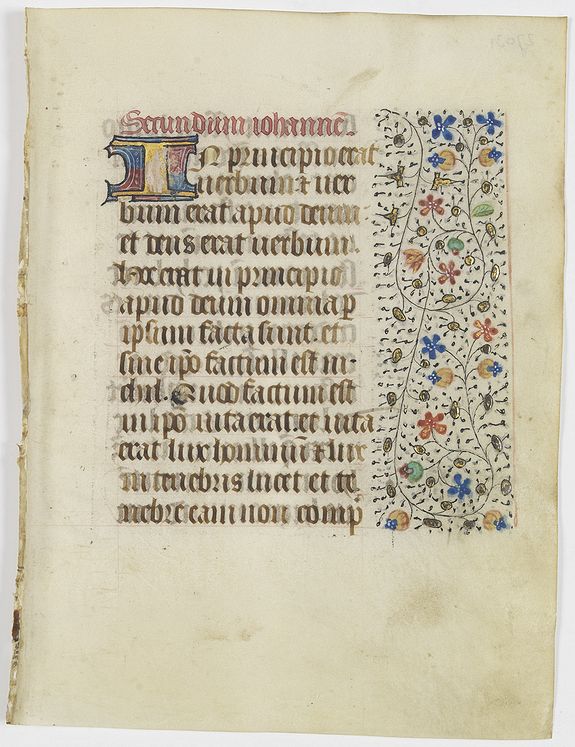 Secundum iohannem
IN principio erat
uerbum ⁊ uer
bum erat apud deum·
et deus erat uerbum.
hoc erat in principio
apud deum omnia p
ipsum facta sunt. et
sine ipo factum est ni-
chil. Quod factum est
in ipo uita erat. et uita
erat lux hominum ⁊ lux
in tenebris lucet et te
nebre eam non comp